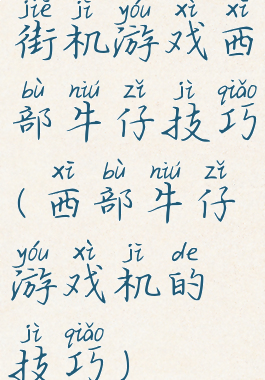 jiē jī yóu xì xī
街机游戏西
bù niú zǐ jì qiǎo
部牛仔技巧
xī bù niú zǐ
(西部牛仔
yóu xì jī de
游戏机的
jì qiǎo
技巧)